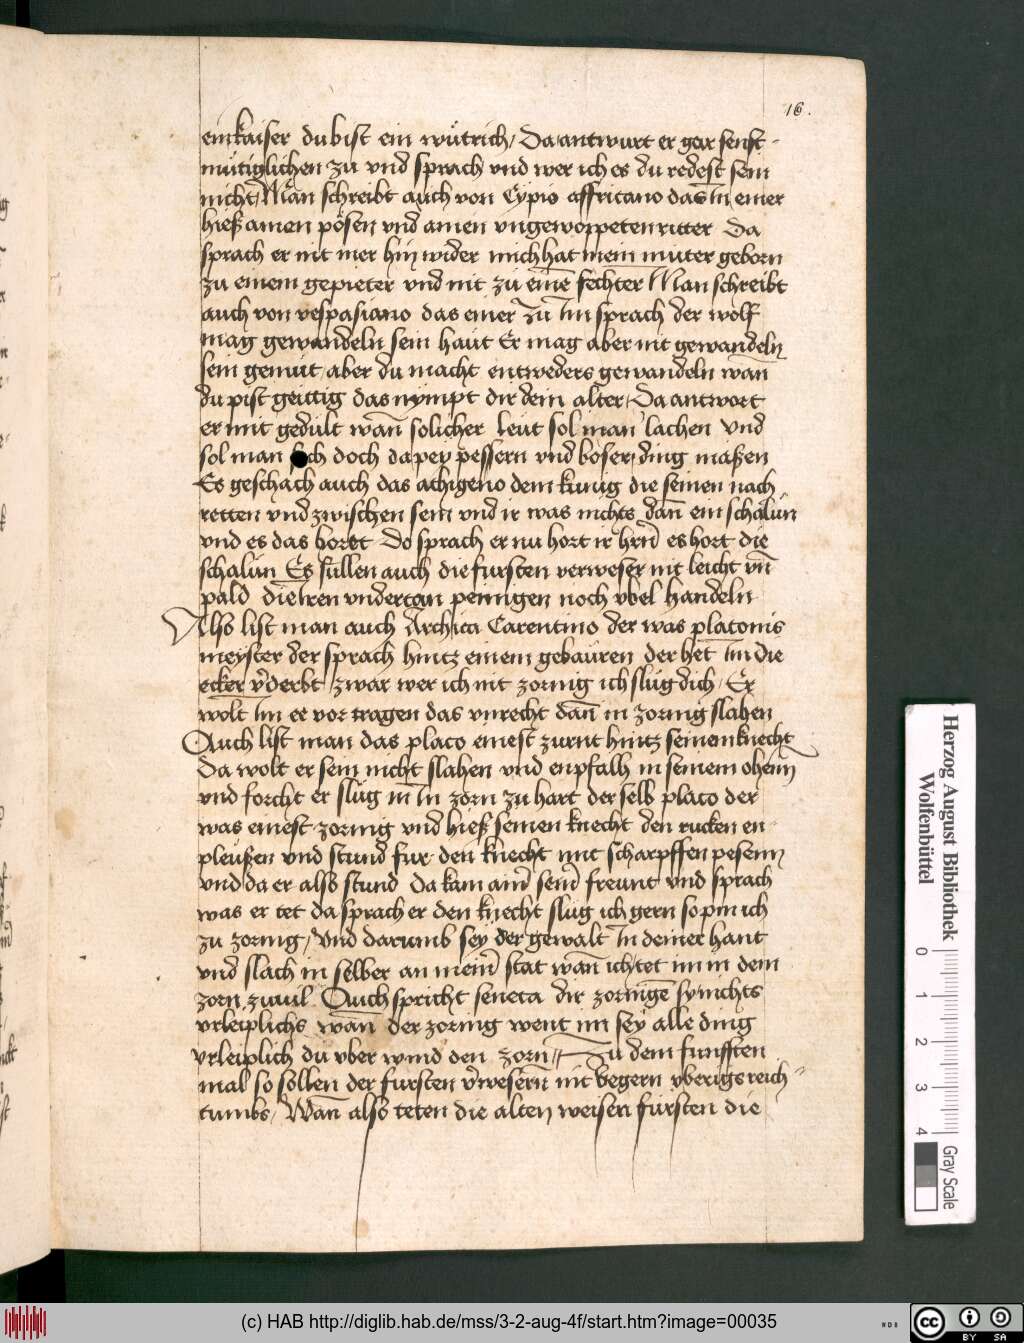 16.
ein kaiser du bist ein wütrich / Da antwurt er gar senft-
mütiglichen zu vnd sprach vnd wer ich es du redest sein
nicht Man schreibt auch von Cypio affricano das In einer
hieß ainen pösen vnd ainen vngewoppeten ritter Da
sprach er nit mer hin wider mich hat mein muter geborn
zu einem gepieter vnd nit zu eine͞ fechter Man schreibt
auch von vespasiano das einer Zu Im sprach der wolf
mag gewandeln sein haüt Er mag aber nit gewandeln
sein gemüt aber du macht entweders gewandeln wan͞
du pist geittig das nympt dir dein alter / Da antwort
er mit gedült wan͞ solicher leüt sol man lachen vnd
sol man sich doch da pey pessern vnd böser ding maßen
Es geschach auch das achigeno dem künig die seinen nach
retten vnd zwischen sein vnd ir was nichts dan͞ ein schalün
vnd es das horet Do sprach er nu hort ir hrn͞ es hort die
schalün Es süllen auch die fürsten verweser nit leicht vn͞
pald die Iren vndertan peinigen noch vbel handeln
Also list man auch Archita Tarentino der was platonis
meyster der sprach hintz einem gebaüren der het Im die
ecker v͛derbt / zwar wer ich nit zornig ich slüg dich / Er
wolt Im ee vor tragen das vnrecht dan͞ in zornig slahen
Auch list man das plato einest zürnt hintz seinem knecht
Da wolt er sein nicht slahen vnd enpfalh in seinem oheim
vnd forcht er slüg in In zorn zu hart der selb plato der
was einest zornig vnd hieß seinen knecht den rucken en
pleüßen vnd stund für den knecht mit scharpffen pesenn
vnd da er also stund Da kam ain͛ sein͛ freünt vnd sprach
was er tet da sprach er den knecht slüg ich gern so pin ich
zu zornig / vnd darumb sey der gewalt In deiner hant
vnd slach in selber an mein͛ stat wan͞ ich tet im in dem
zorn zuuil Auch spricht seneca dir zornige͞ sy nichts
vrleiplichs wan͞ der zornig went im sey alle ding
vrleiplich du vber wind den zorn // Zu dem fünfften
mal so sollen der fürsten v͛wesern͞ nit begern vberigs reich-
tumbs / Wan͞ also teten die alten weisen fürsten die
Herzog August Bibliothek
Wolfenbüttel
0 1 2 3 4
Gray Scale
(c) HAB http://diglib.hab.de/mss/3-2-aug-4f/start.htm?image=00035
cc BY SA